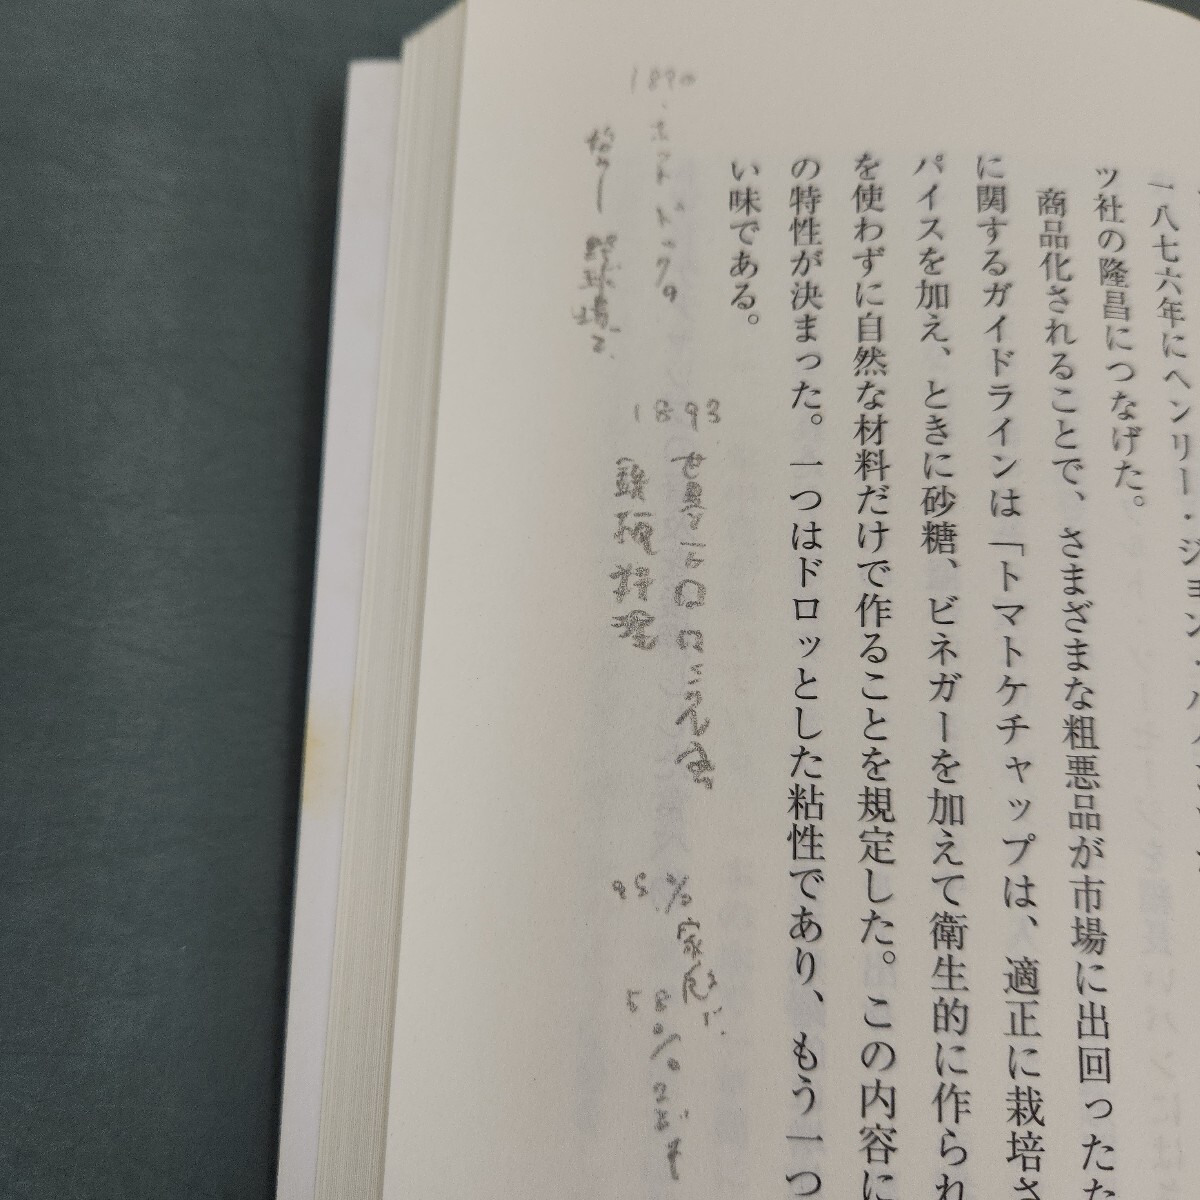 一八七六年にヘンリー・ジョン・ハインツ
ツ社の隆昌につなげた。
商品化されることで、さまざまな粗悪品が市場に出回ったた
に関するガイドラインは「トマトケチャップは、適正に栽培さ
パイスを加え、ときに砂糖、ビネガーを加えて衛生的に作られ
を使わずに自然な材料だけで作ることを規定した。この内容に
の特性が決まった。一つはドロッとした粘性であり、もう一つ
い味である。
1890
ホットドッグ
野球場で
1893
世界コロンブス
鉄板料理
95%
家庭に
58%